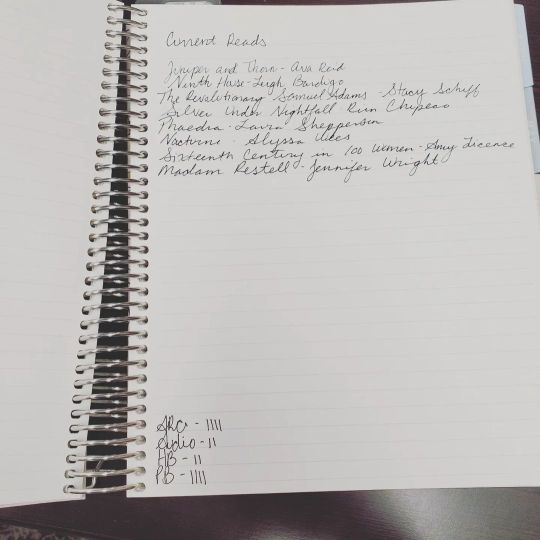 Current Reads
Juniper and Thorn - Ava Reid
Ninth House - Leigh Bardugo
The Revolutionary Samuel Adams - Stacy Schiff
Silver Under Nightfall Rin Chupeco
Phaedra - Laura Shepperson
Nocturne - Alyssa Wees
Sixteenth Century in 100 Women - Amy Licence
Madam Restell - Jennifer Wright
ARC - IIII
Audio - II
HB - II
PB - IIII